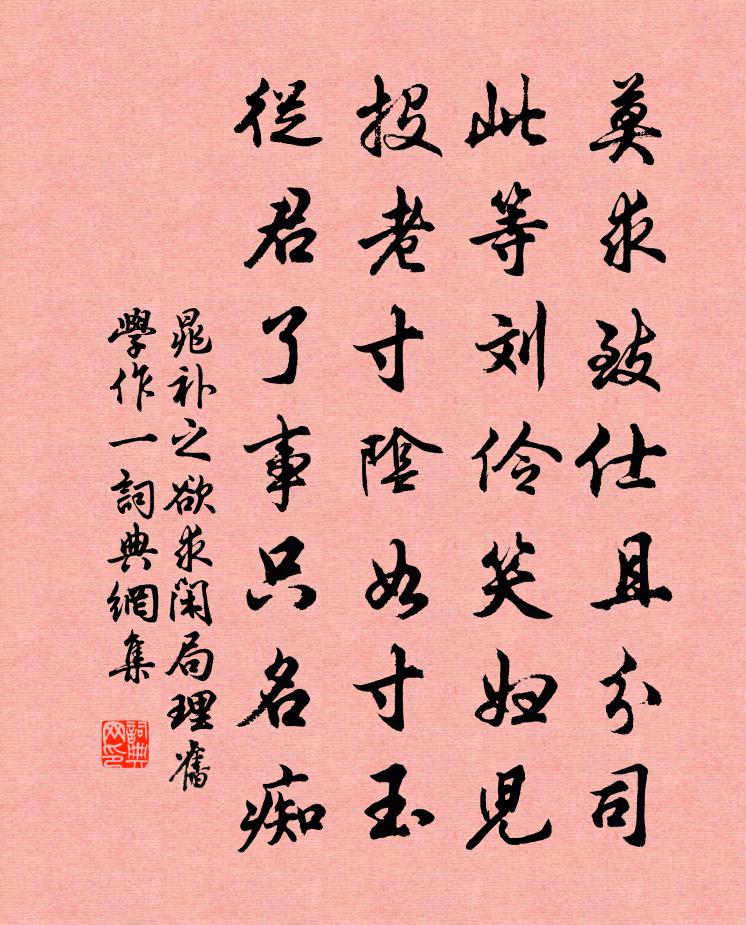 莫求致仕且分司
此等刘伶笑妇児
投老寸陰如寸玉
從君了事只名痴
晁补之欲求閑局理舊
學作一詞典網集
詞典網印